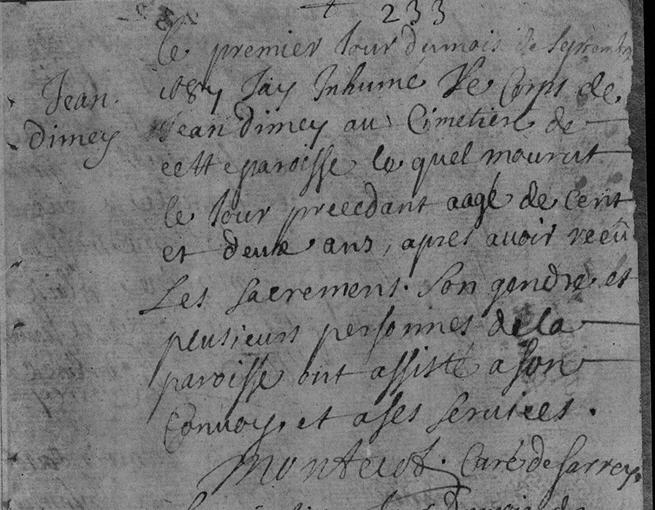 233
le premier Jour du mois de Septembre
1687 Jay Inhumé Le Corps de
Jean dimey au Cimetiere de
cette paroisse le quel mourut
le Jour precedant aagé de Cent
et deux ans, apres auoir receu
Les sacremens. Son gendre et
plusieurs personnes de la
paroisse ont assisté a son
Convoy. et a ses seruices.
Curé de Sarrey
Jean
dimey